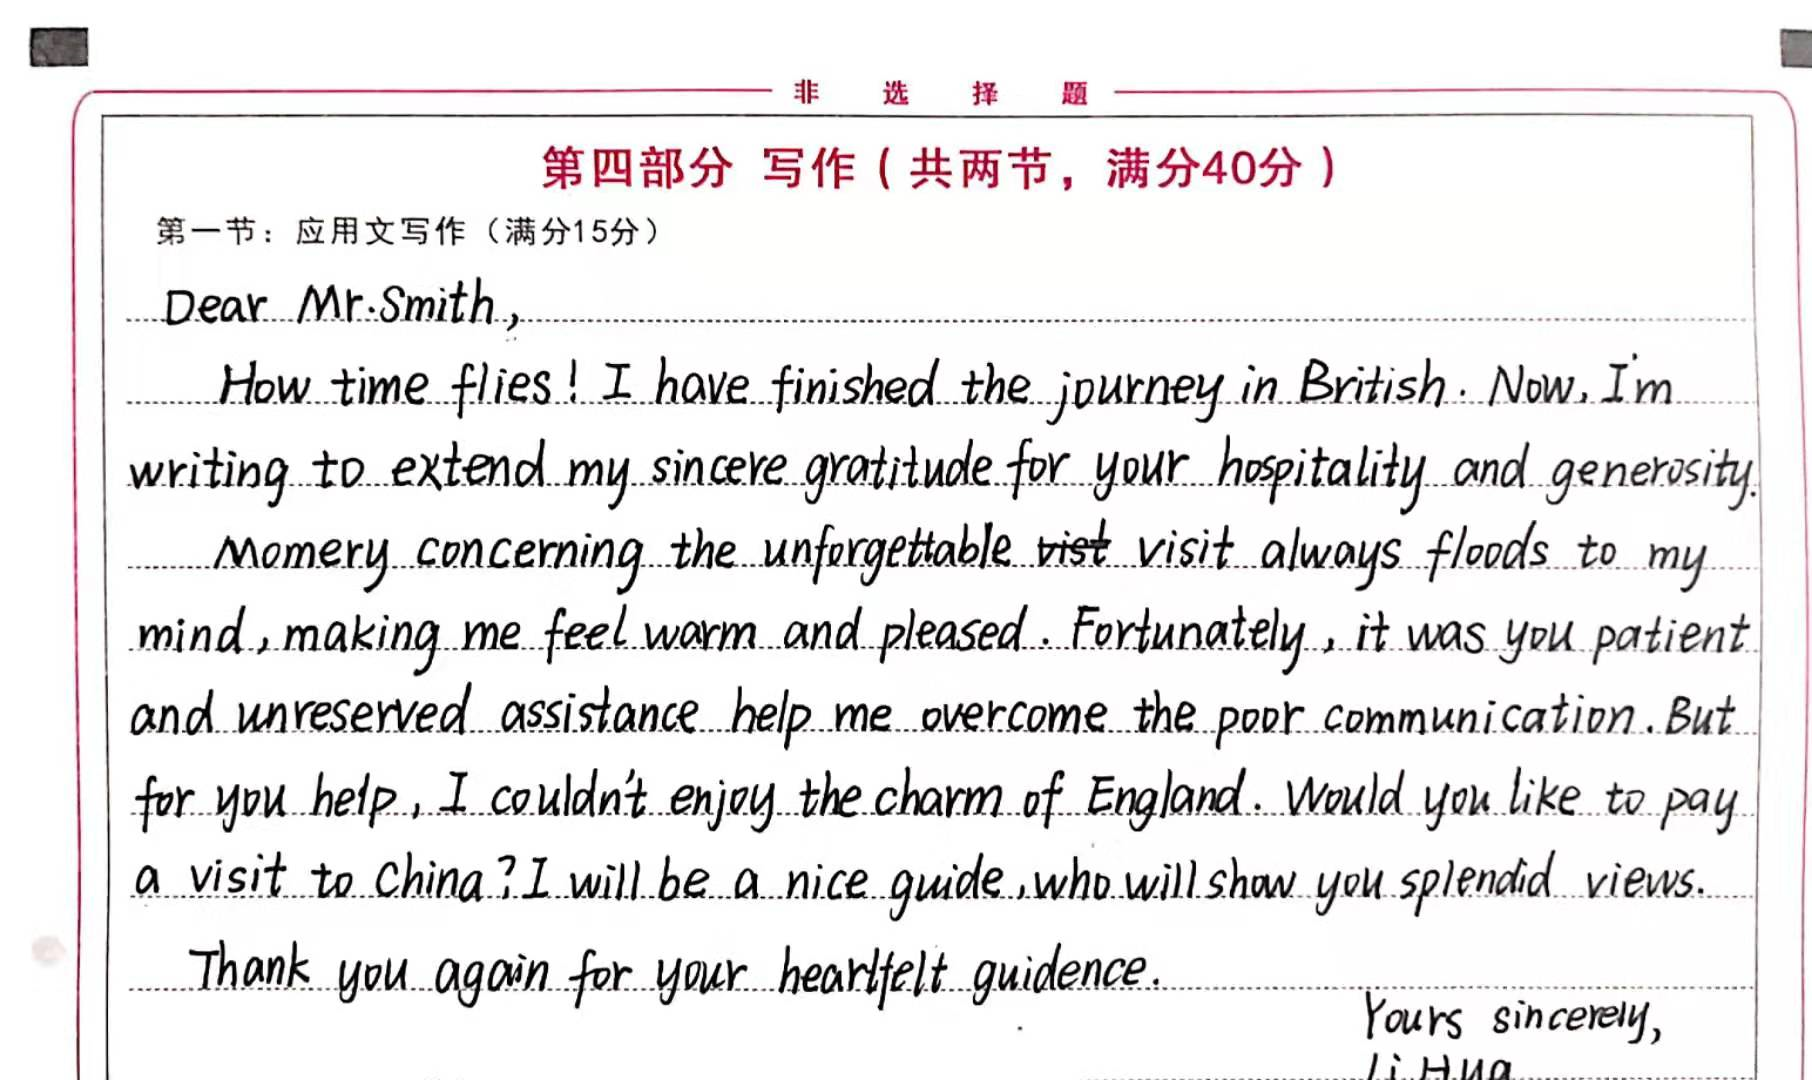 非 选 择 题
第四部分 写作（共两节，满分40分）
第一节：应用文写作（满分15分）
Dear Mr.Smith,
How time flies! I have finished the journey in British. Now, I'm
writing to extend my sincere gratitude for your hospitality and generosity.
Momery concerning the unforgettable vist visit always floods to my
mind, making me feel warm and pleased. Fortunately, it was you patient
and unreserved assistance help me overcome the poor communication. But
for you help, I couldn't enjoy the charm of England. Would you like to pay
a visit to China? I will be a nice guide, who will show you splendid views.
Thank you again for your heartfelt guidence.
Yours sincerely,
Li Hua